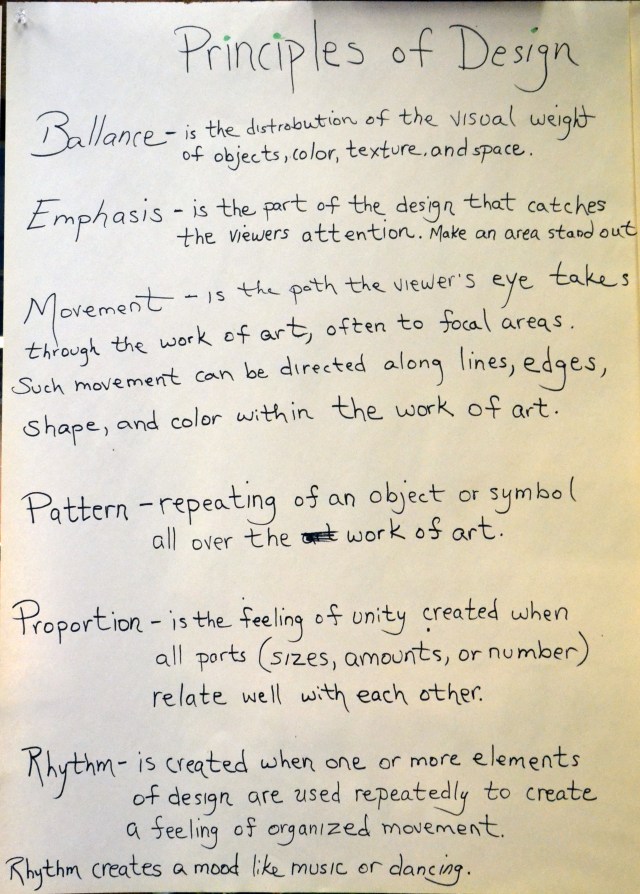 Principles of Design
Ballance - is the distrobution of the visual weight
of objects, color, texture, and space.
Emphasis - is the part of the design that catches
the viewers attention. Make an area stand out
Movement - is the path the viewer's eye takes
through the work of art, often to focal areas.
Such movement can be directed along lines, edges,
shape, and color within the work of art.
Pattern - repeating of an object or symbol
all over the work of art.
Proportion - is the feeling of unity created when
all parts (sizes, amounts, or number)
relate well with each other.
Rhythm - is created when one or more elements
of design are used repeatedly to create
a feeling of organized movement.
Rhythm creates a mood like music or dancing.